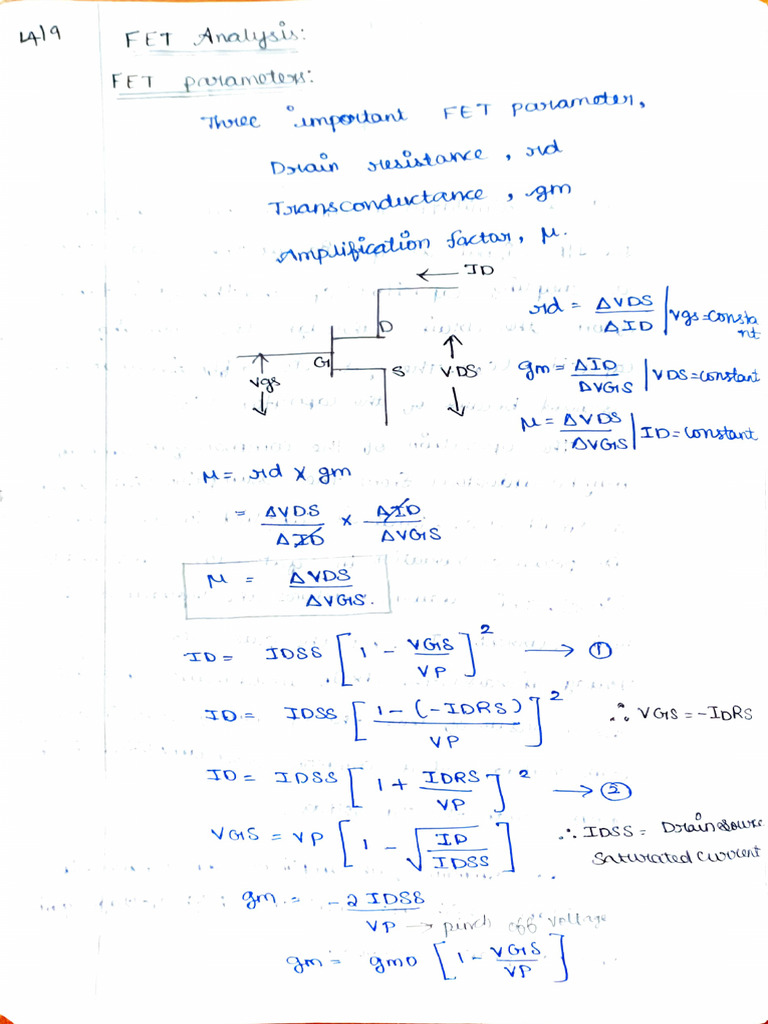 4/9
FET Analysis:
FET parameters:
Three important FET parameter,
Drain resistance, rd
Transconductance, gm
Amplification factor, μ.
← ID
D
G
S
Vgs
VDS
rd = ΔVDS / ΔID | Vgs=constant
gm = ΔID / ΔVGS | VDS=constant
μ = ΔVDS / ΔVGS | ID=constant
μ = rd x gm
= ΔVDS / ΔID x ΔID / ΔVGS
μ = ΔVDS / ΔVGS.
ID = IDSS [1 - VGS / VP]² → ①
ID = IDSS [1 - (-IDRS) / VP]² ∴ VGS = -IDRS
ID = IDSS [1 + IDRS / VP]² → ②
VGS = VP [1 - √(ID / IDSS)] ∴ IDSS = Drain source
saturated current
gm = -2 IDSS / VP → pinch off voltage
gm = gmo [1 - VGS / VP]